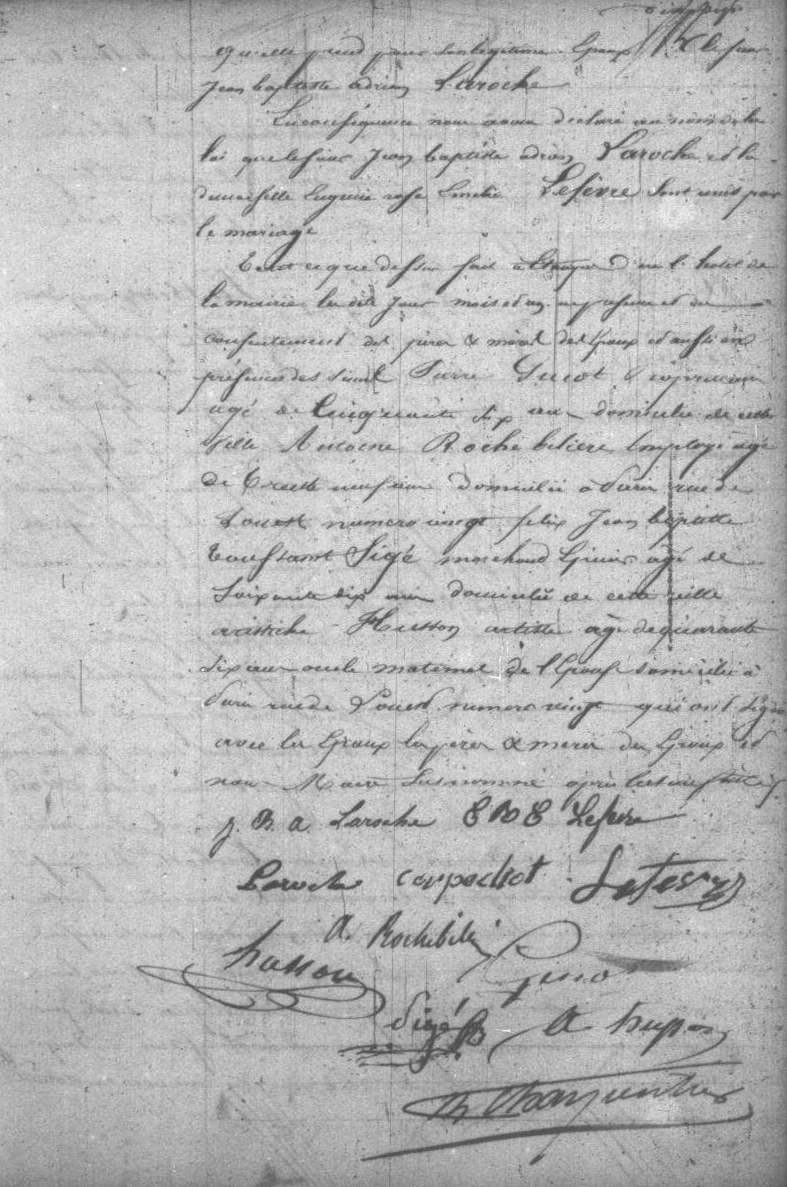 qu'elle prend pour son légitime Epoux le sieur
Jean baptiste adrien Laroche
En conséquence nous avons déclaré au nom de la
loi que le sieur Jean baptiste adrien Laroche et la
demoiselle Eugénie rose Emelie Lefèvre sont unis par
le mariage
Tout ce que dessus fait a dans l'hotel de
la mairie les dits Jour mois et an en presence et du
consentement des pères & mères des Epoux et aussi en
présence des sieurs Pierre
agé de Cinquante six ans domicilié de cette
ville Antoine Rochebiliere Employé agé
de trente neuf ans domicilié à Paris rue de
Louest numero vingt felix Jean baptiste
toussaint Sigé marchand Epicier agé de
Soixante dix ans domicilié de cette ville
Husson artiste agé de quarante
six ans oncle maternel de l'Epouse domicilié à
Paris rue de Louest numero vingt qui ont signé
avec les Epoux les pères & mères des Epoux et
nous Maire susnommé après lecture faite
J. B. a. Laroche E R E Lefevre
Laroche
A. Rochebili
husson
Sigé A husson
Charpentier